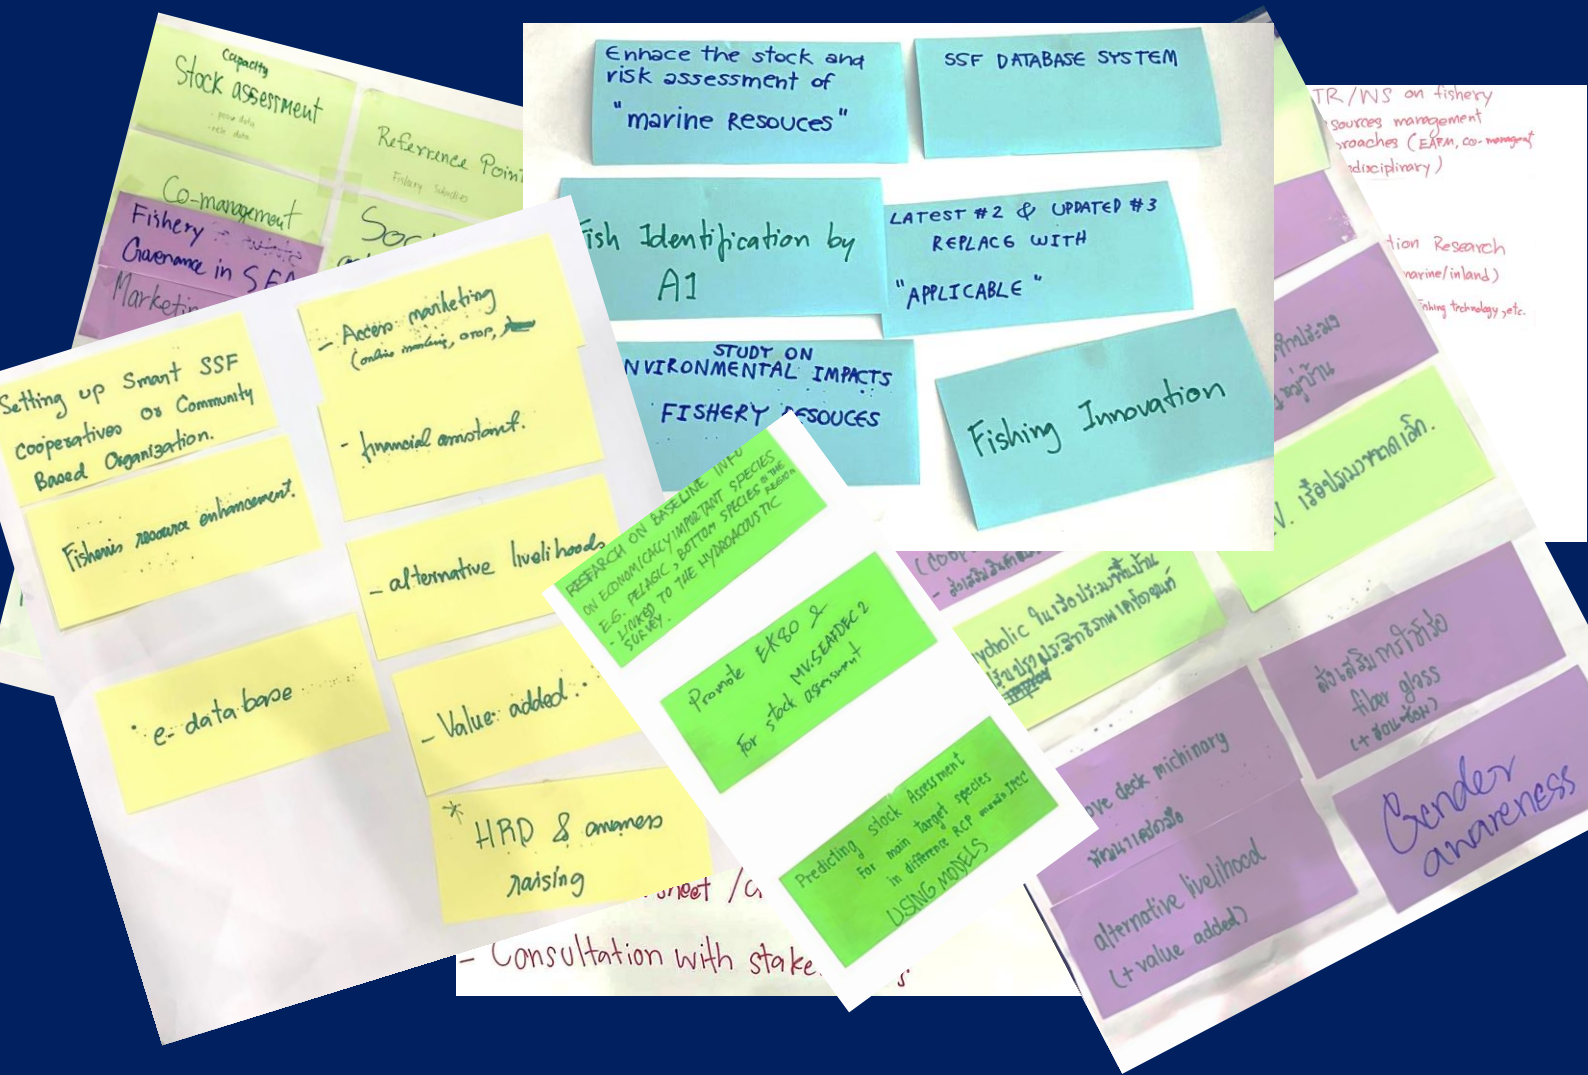 Capacity
Stock assessment
Reference Poin
Fishery Subsidies
Co-management
Soc
Fishery
Governance in SEA
Marketin
Enhace the stock and
risk assessment of
"marine Resouces"
SSF DATABASE SYSTEM
ish Identification by
AI
LATEST #2 & UPDATED #3
REPLACE WITH
"APPLICABLE"
STUDY ON
NVIRONMENTAL IMPACTS
FISHERY RESOUCES
Fishing Innovation
TR/WS on fishery
sources management
roaches (EAFM, co-managemet
disciplinary)
tion Research
marine/inland)
fishing technology, etc.
Setting up Smart SSF
cooperatives or Community
Based Organization.
Fisheries resource enhancement.
e-database
- Access marketing
(online marketing, OTOP,
- financial assistant.
- alternative livelihoods
- Value added
* HRD & awarness
raising
RESEARCH ON BASELINE INFO
ON ECONOMICALLY IMPORTANT SPECIES
EG. PELAGIC, BOTTOM SPECIES IN THE REGION
- LINKED TO THE HYDROACOUSTIC
SURVEY.
Promote EK80 &
MV.SEAFDEC 2
For stock assessment
Predicting stock Assessment
For main target species
in difference RCP IPCC
USING MODELS
- Consultation with stake
ทำประมง
หมู่บ้าน
V. เรือประมงขนาดเล็ก.
(coop
ydrolic ในเรือประมงพื้นบ้าน
ปรับปรุงประสิทธิภาพเครื่องยนต์
ส่งเสริมการใช้เรือ
fiber glass
(+ซ่อมแซม)
ove deck michinary
พัฒนาเครื่องมือ
alternative livelihood
(+ value added)
Gender
awareness